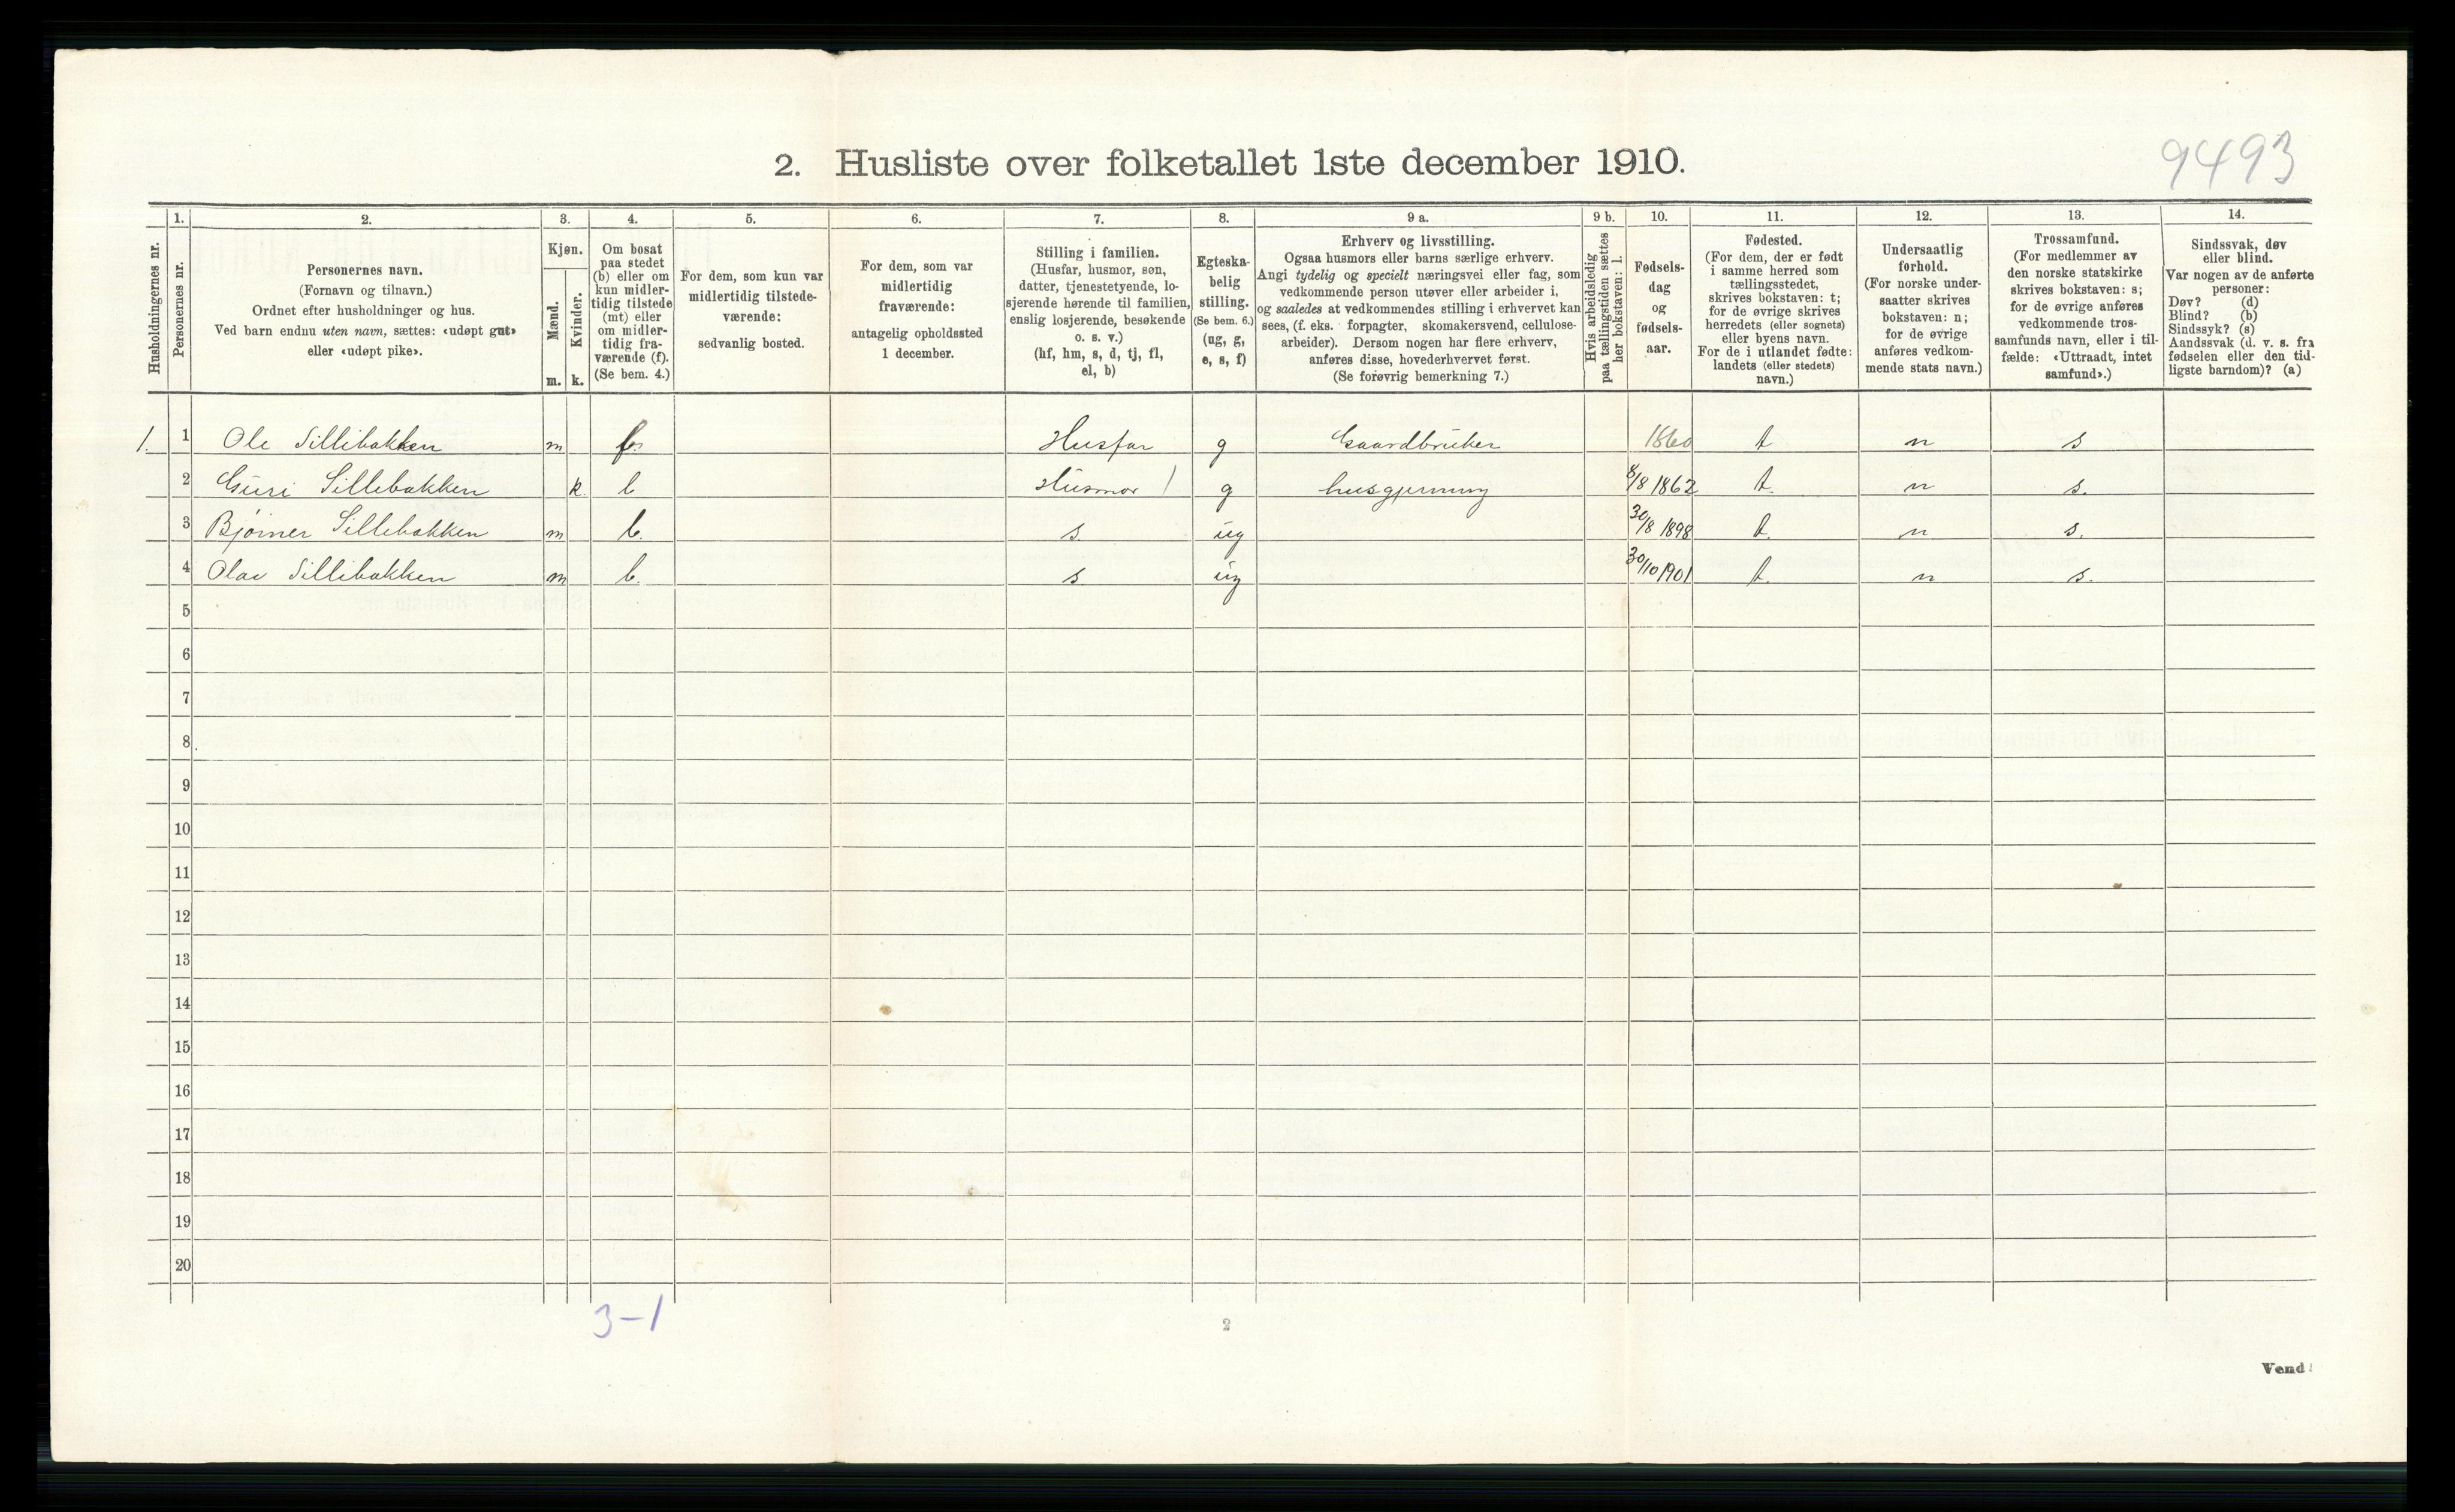 9493
2. Husliste over folketallet 1ste december 1910.
1. 2. 3. 4. 5. 6. 7. 8. 9 a. 9 b. 10. 11. 12. 13. 14.
Husholdningernes nr.
Personernes nr.
Personernes navn.
(Fornavn og tilnavn.)
Ordnet efter husholdninger og hus.
Ved barn endnu uten navn, sættes: «udøpt gut»
eller «udøpt pike».
Kjøn.
Mænd.
Kvinder.
m. k.
Om bosat
paa stedet
(b) eller om
kun midler-
tidig tilstede
(mt) eller
om midler-
tidig fra-
værende (f).
(Se bem. 4.)
For dem, som kun var
midlertidig tilstede-
værende:
sedvanlig bosted.
For dem, som var
midlertidig
fraværende:
antagelig opholdssted
1 december.
Stilling i familien.
(Husfar, husmor, søn,
datter, tjenestetyende, lo-
sjerende hørende til familien,
enslig losjerende, besøkende
o. s. v.)
(hf, hm, s, d, tj, fl,
el, b)
Egteska-
belig
stilling.
(Se bem. 6.)
(ug, g,
e, s, f)
Erhverv og livsstilling.
Ogsaa husmors eller barns særlige erhverv.
Angi tydelig og specielt næringsvei eller fag, som
vedkommende person utøver eller arbeider i,
og saaledes at vedkommendes stilling i erhvervet kan
sees, (f. eks. forpagter, skomakersvend, cellulose-
arbeider). Dersom nogen har flere erhverv,
anføres disse, hovederhvervet først.
(Se forøvrig bemerkning 7.)
Hvis arbeidsledig
paa tællingstiden sættes
her bokstaven: l.
Fødsels-
dag
og
fødsels-
aar.
Fødested.
(For dem, der er født
i samme herred som
tællingsstedet,
skrives bokstaven: t;
for de øvrige skrives
herredets (eller sognets)
eller byens navn.
For de i utlandet fødte:
landets (eller stedets)
navn.)
Undersaatlig
forhold.
(For norske under-
saatter skrives
bokstaven: n;
for de øvrige
anføres vedkom-
mende stats navn.)
Trossamfund.
(For medlemmer av
den norske statskirke
skrives bokstaven: s;
for de øvrige anføres
vedkommende tros-
samfunds navn, eller i til-
fælde: «Uttraadt, intet
samfund».)
Sindssvak, døv
eller blind.
Var nogen av de anførte
personer:
Døv? (d)
Blind? (b)
Sindssyk? (s)
Aandssvak (d. v. s. fra
fødselen eller den tid-
ligste barndom)? (a)
1. 1 Ole Sillibakken m Husfar g Gaardbruker 1860 t n s
2 Guri Sillebakken k. b Husmor g husgjerning 8/8 1862 t. n s.
3 Bjørner Sillebakken m b. s. ug 30/8 1898 t. n s.
4 Olav Sillibakken m b. s ug 30/10 1901 t. n s.
5
6
7
8
9
10
11
12
13
14
15
16
17
18
19
20
3-1
2
Vend!